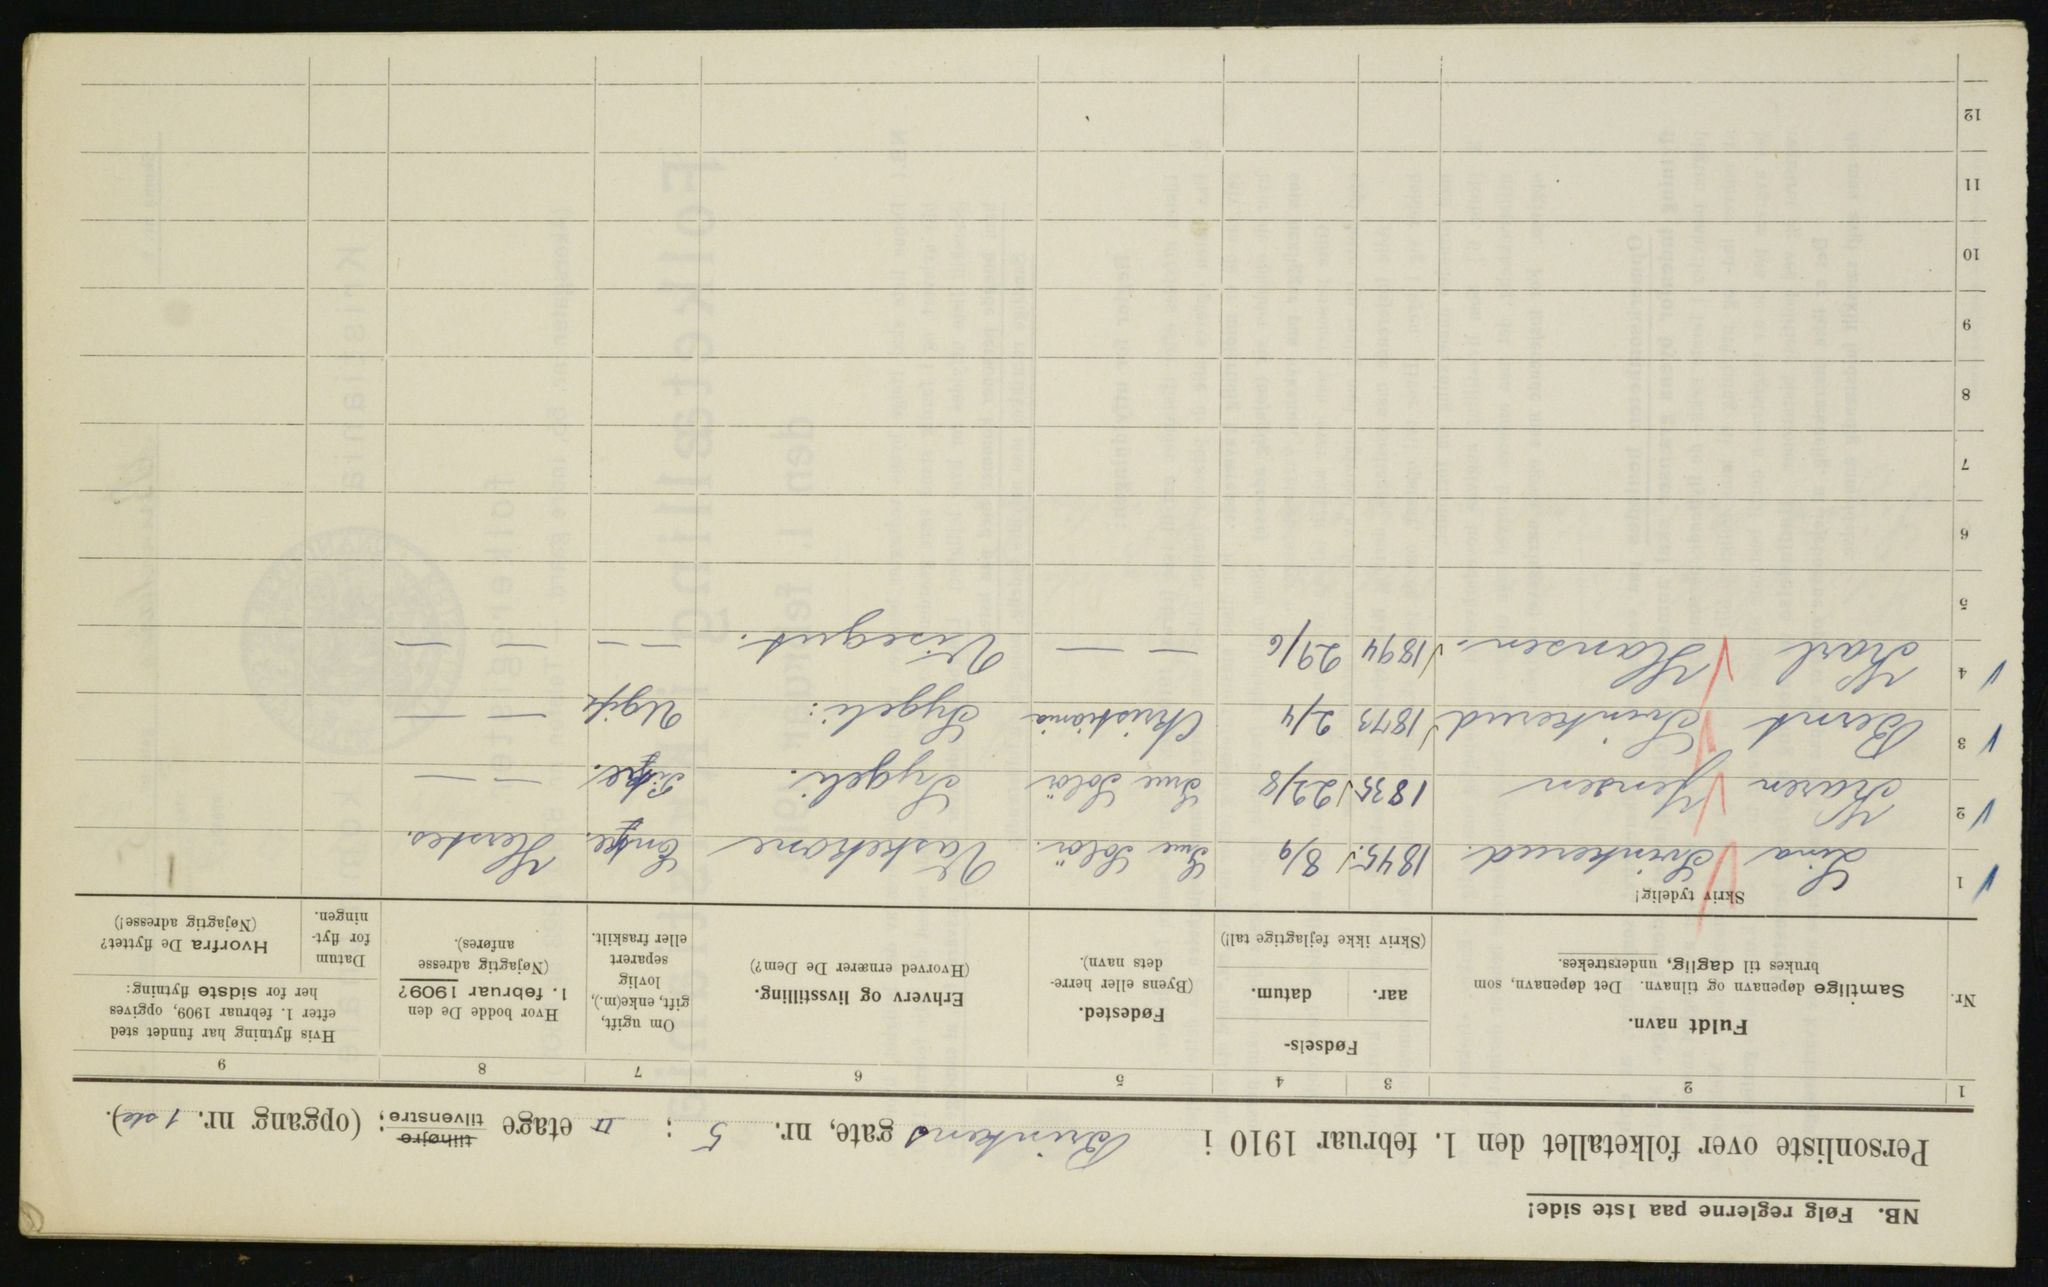 NB. Følg reglerne paa 1ste side!
Personliste over folketallet den 1. februar 1910 i Brinkens gate, nr. 5; II etage tilhøjre tilvenstre; (opgang nr. 1 ste).
1 2 3 4 5 6 7 8 9
Nr.
Fuldt navn.
Samtlige døpenavn og tilnavn. Det døpenavn, som
brukes til daglig, understrekes.
Skriv tydelig!
Fødsels-
aar. datum.
(Skriv ikke fejlagtige tal!)
Fødested.
(Byens eller herre-
dets navn).
Erhverv og livsstilling.
(Hvorved ernærer De Dem?)
Om ugift,
gift, enke(m.),
lovlig
separert
eller fraskilt.
Hvor bodde De den
1. februar 1909?
(Nøjagtig adresse
anføres).
Hvis flytning har fundet sted
efter 1. februar 1909, opgives
her for sidste flytning:
Datum
for flyt-
ningen.
Hvorfra De flyttet?
(Nøjagtig adresse!)
1 Lina Svinkerud. 1845. 8/9 Grue Solör. Vaskekone Enke. Herstes.
2 Karen Jensen 1835 22/8 Grue Solör Sygeli. — —
3 Bernt Svinkerud 1873 2/4 Christiania Sygeli: Ugift — —
4 Karl Hansen. 1894 29/6 — — Visegut. — — — —
5
6
7
8
9
10
11
12